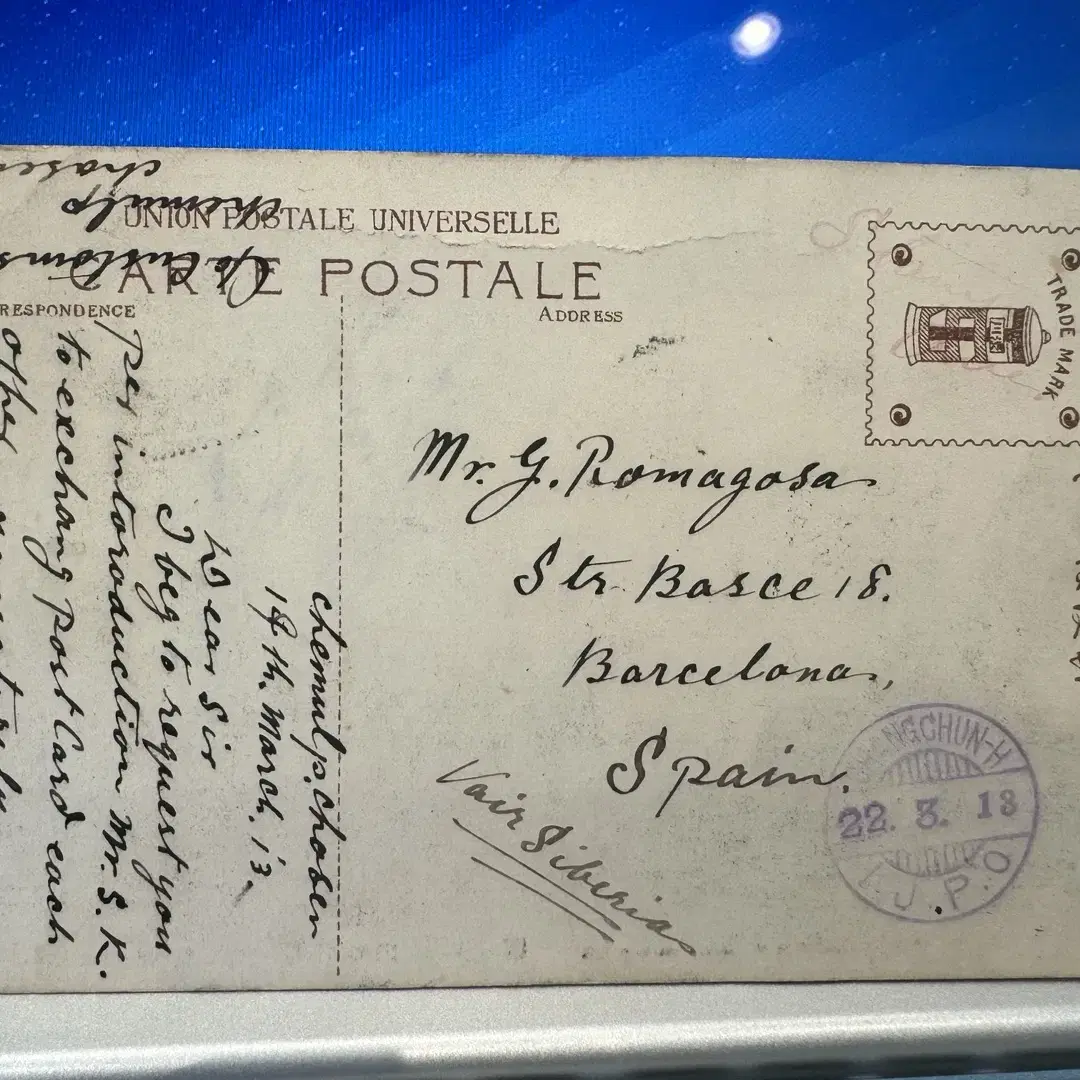 UNION POSTALE UNIVERSELLE
CARTE POSTALE
RESPONDENCE
ADDRESS
TRADE MARK
Mr. G. Romagosa
Str Basce 18.
Barcelona,
Spain.
Vair Siberia
NGCHUN-H
22. 3. 13
I.J.P.O
chemulp, chosen
19th. March. 13.
Dear Sir
I beg to request you
per intoroduction Mr. S. K.
to exchang post Card each
other
c/o Customs
chemulp
chosen